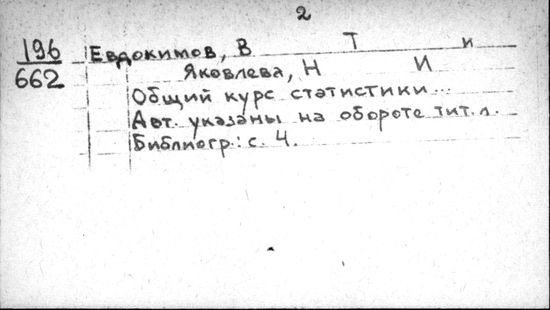 2
196 Евдокимов, В Т и
662 Яковлева, Н И
Общий курс статистики...
Авт. указаны на обороте тит. л.
Библиогр.: с. 4.